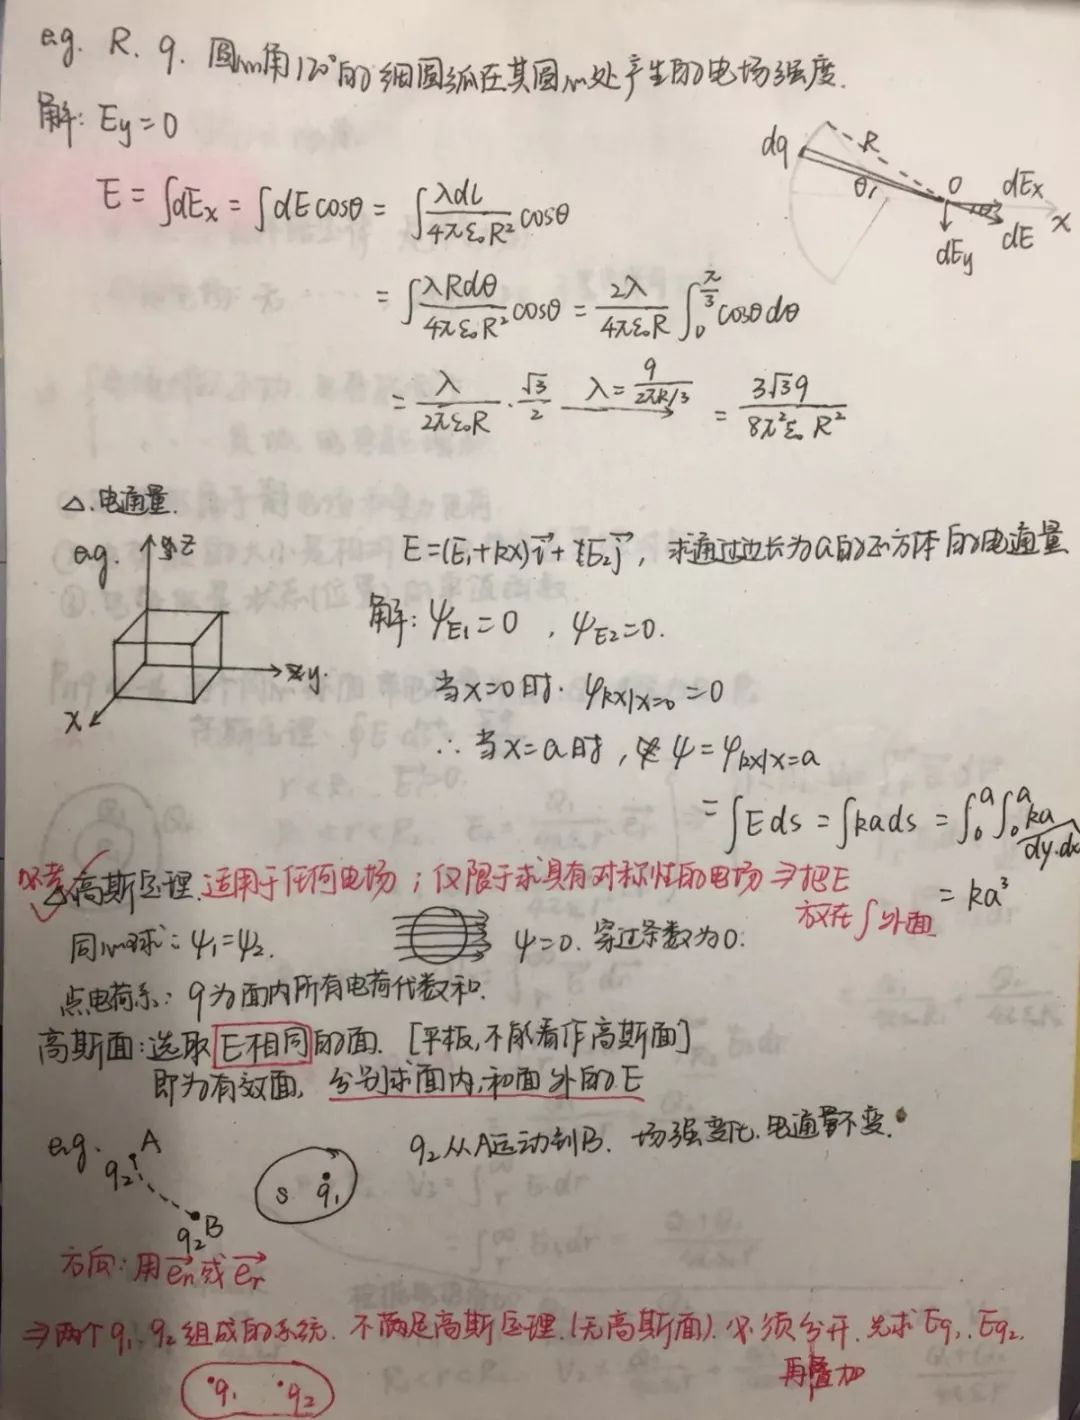 e.g. R. q. 圆心角120°的细圆弧在其圆心处产生的电场强度.
解: Ey=0
dq R θ O dEx x dEy dE
E = ∫dEx = ∫dEcosθ = ∫λdl/4πε₀R² cosθ
= ∫λRdθ/4πε₀R² cosθ = 2λ/4πε₀R ∫₀^(π/3) cosθdθ
= λ/2πε₀R · √3/2 λ= q/2πR/3 = 3√3q/8π²ε₀R²
△.电通量.
e.g. z
E=(E₁+kx)i→+E₂j→, 求通过边长为a的正方体的电通量
解: ψE₁=0 , ψE₂=0.
y.
x
当x=0时. φkx|x=0=0
∴当x=a时, ψ=φkx|x=a
=∫Eds=∫kads=∫₀ᵃ∫₀ᵃka dy.dx
= ka³
必考 高斯定理. 适用于任何电场; 仅限于求具有对称性的电场⇒把E
放在∫外面
同心球: ψ₁=ψ₂. ψ=0. 穿过条数为0.
点电荷系: q为面内所有电荷代数和.
高斯面:选取E相同的面. [平板,不能看作高斯面]
即为有效面, 分别求面内,和面外的E
e.g. A q₂ B q₂ S q₁
q₂从A运动到B. 场强变化. 电通量不变.
方向:用en→或er→
⇒两个q₁、q₂组成的系统. 不满足高斯定理.(无高斯面). 必须分开. 先求Eq₁、Eq₂.
再叠加
q₁ q₂